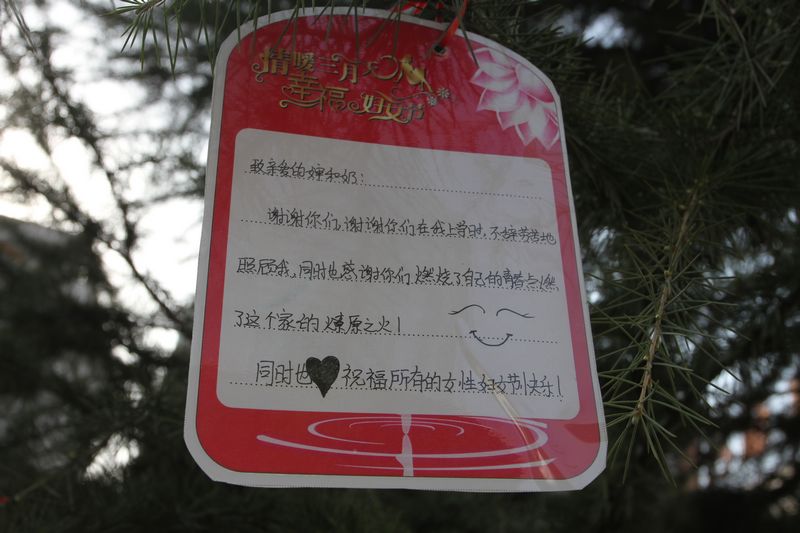 情暖三月天
幸福妇女节
致亲爱的婶和奶：
谢谢你们，谢谢你们在我上学时，不辞劳苦地
照顾我，同时也感谢你们燃烧了自己的青春点燃
了这个家的燎原之火！
同时也祝福所有的女性妇女节快乐！